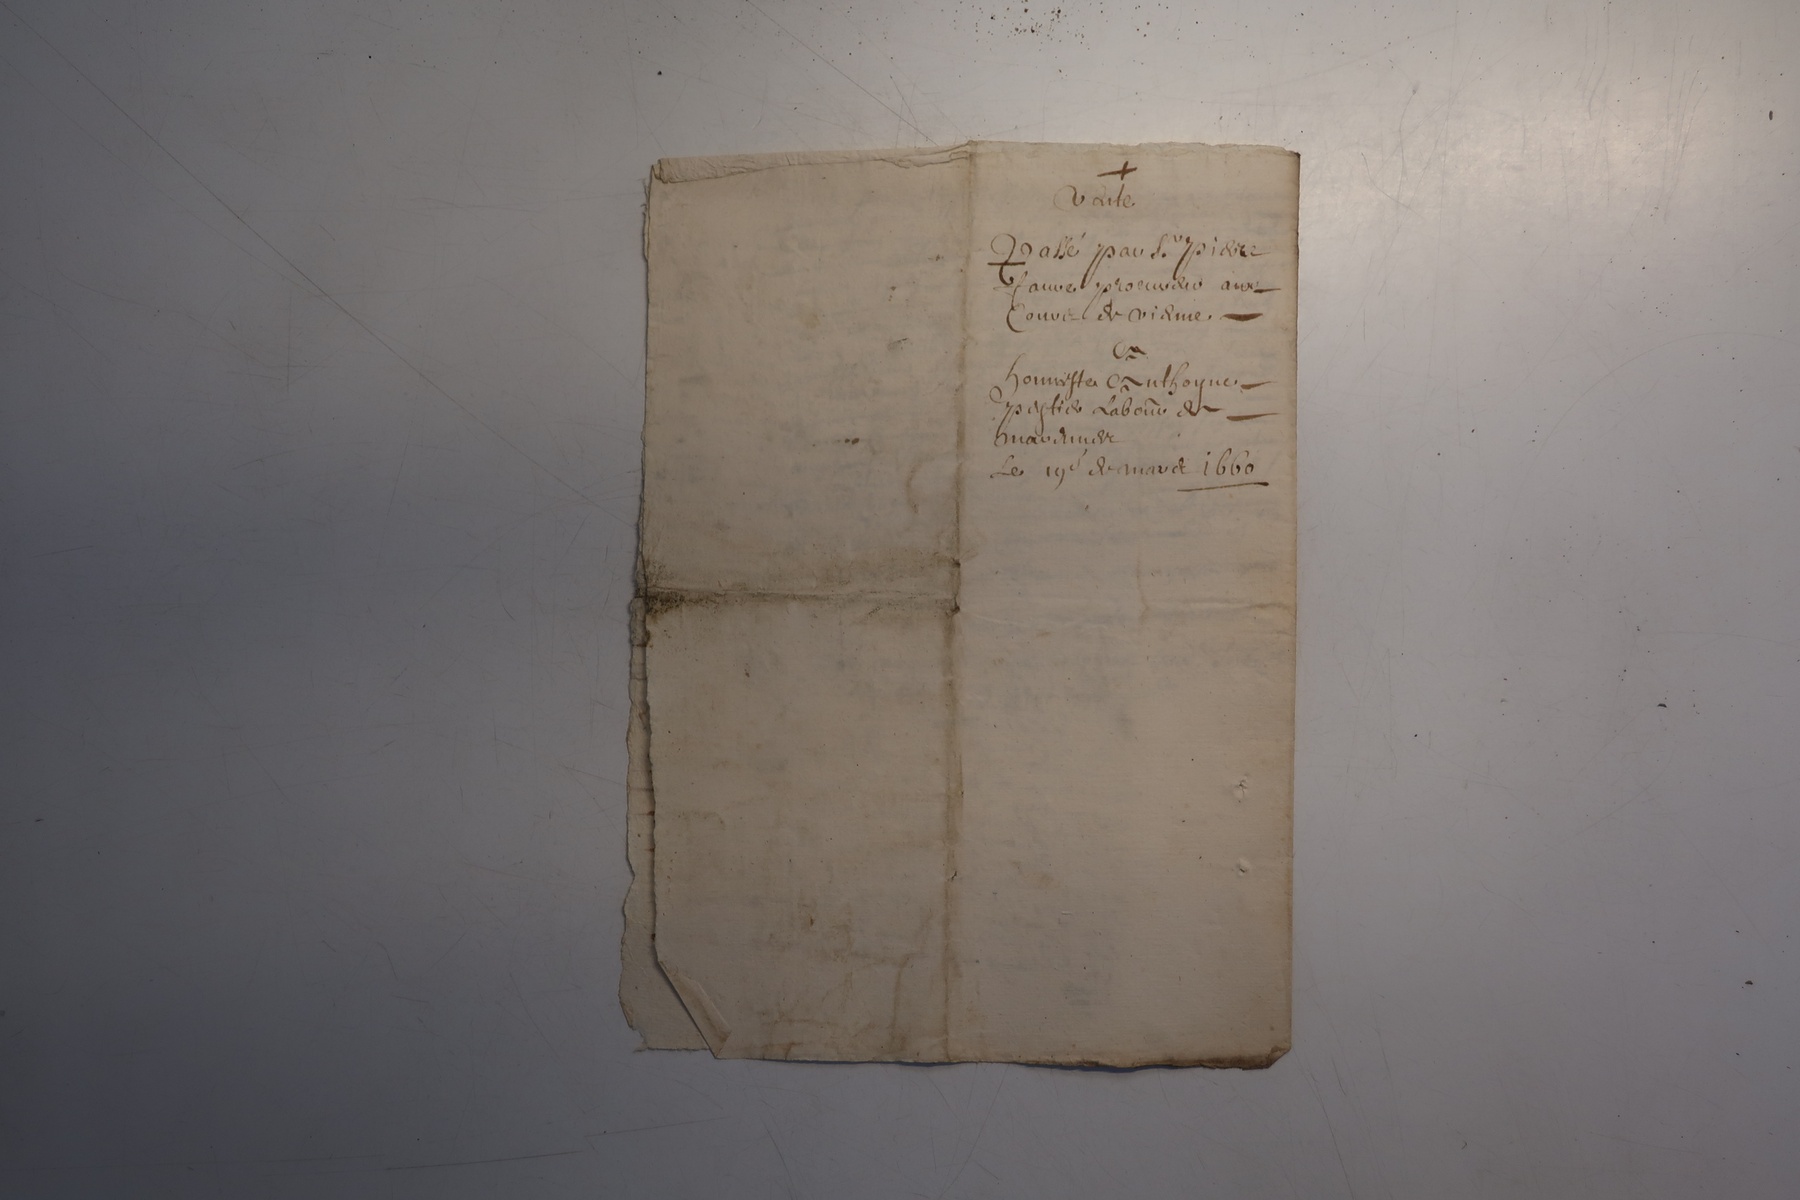 +
Vente
Passé par Sr Pierre
Faure procureur aux
Cours de vienne
A
honneste Anthoyne
labour de
Le 19e de mars 1660